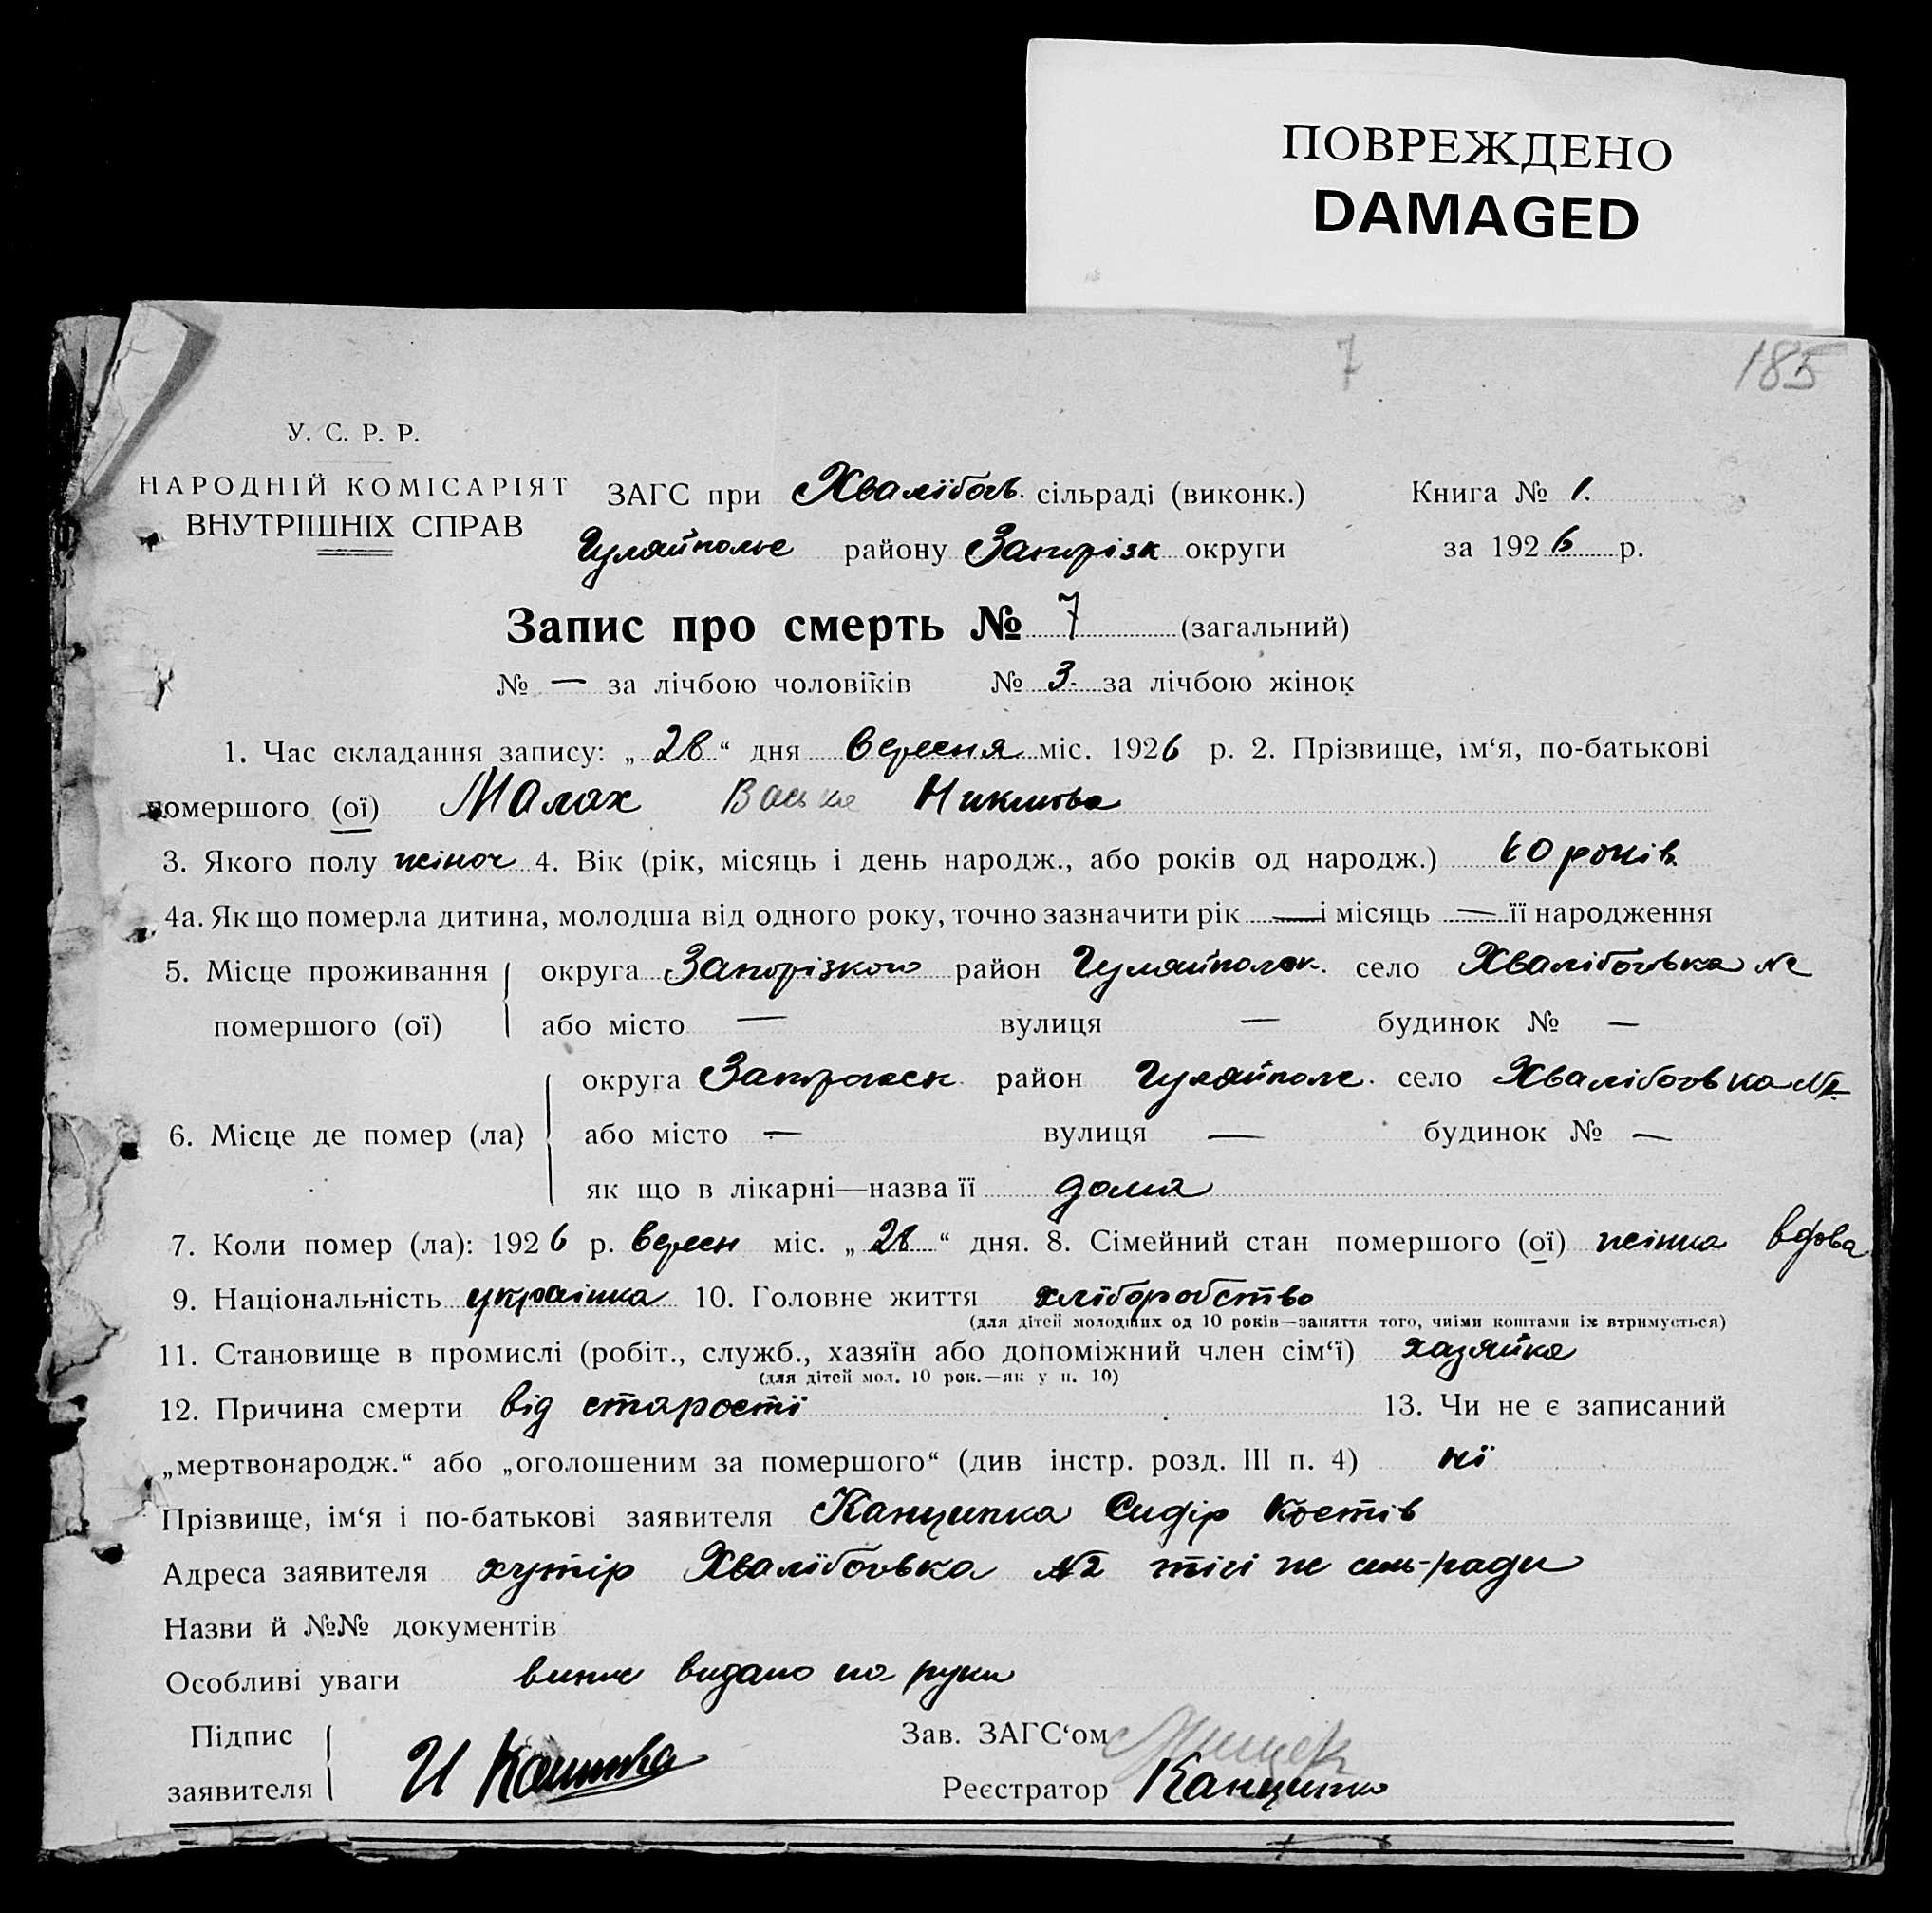 ПОВРЕЖДЕНО
DAMAGED
7 185
У. С. Р. Р.
НАРОДНІЙ КОМІСАРІЯТ
ВНУТРІШНІХ СПРАВ
ЗАГС при Хвалібогв. сільраді (виконк.) Книга № 1.
Гуляйполье району Запорізк округи за 1926 р.
Запис про смерть № 7 (загальний)
№ — за лічбою чоловіків № 3. за лічбою жінок
1. Час складання запису: „28“ дня вересня міс. 1926 р. 2. Прізвище, ім‘я, по-батькові
помершого (ої) Малах
3. Якого полу жіноч 4. Вік (рік, місяць і день народж., або років од народж.) 60 років
4а. Як що померла дитина, молодша від одного року, точно зазначити рік — і місяць — її народження
5. Місце проживання округа Запорізкою район Гуляйполск. село Хвалібоговка №
помершого (ої) або місто — вулиця — будинок № —
округа район Гуляйполе. село Хвалібоговка №
6. Місце де помер (ла) або місто — вулиця — будинок № —
як що в лікарні—назва її дома
7. Коли помер (ла): 1926 р. вересн міс. „28“ дня. 8. Сімейний стан помершого (ої) жінка вдова
9. Національність украінка 10. Головне життя хліборобство
(для дітей молодших од 10 років—заняття того, чиїми коштами їх втримується)
11. Становище в промислі (робіт., служб., хазяїн або допоміжний член сім‘ї) хазяйка
(для дітей мол. 10 рок.—як у п. 10)
12. Причина смерти від старості 13. Чи не є записаний
„мертвонародж.“ або „оголошеним за помершого“ (див інстр. розд. III п. 4) ні
Прізвище, ім‘я і по-батькові заявителя Канципка Сидір Костів
Адреса заявителя хутір Хвалібоговка №2 тієі же сель-ради
Назви й №№ документів
Особливі уваги видано на руки
Підпис Зав. ЗАГС‘ом
заявителя Реєстратор